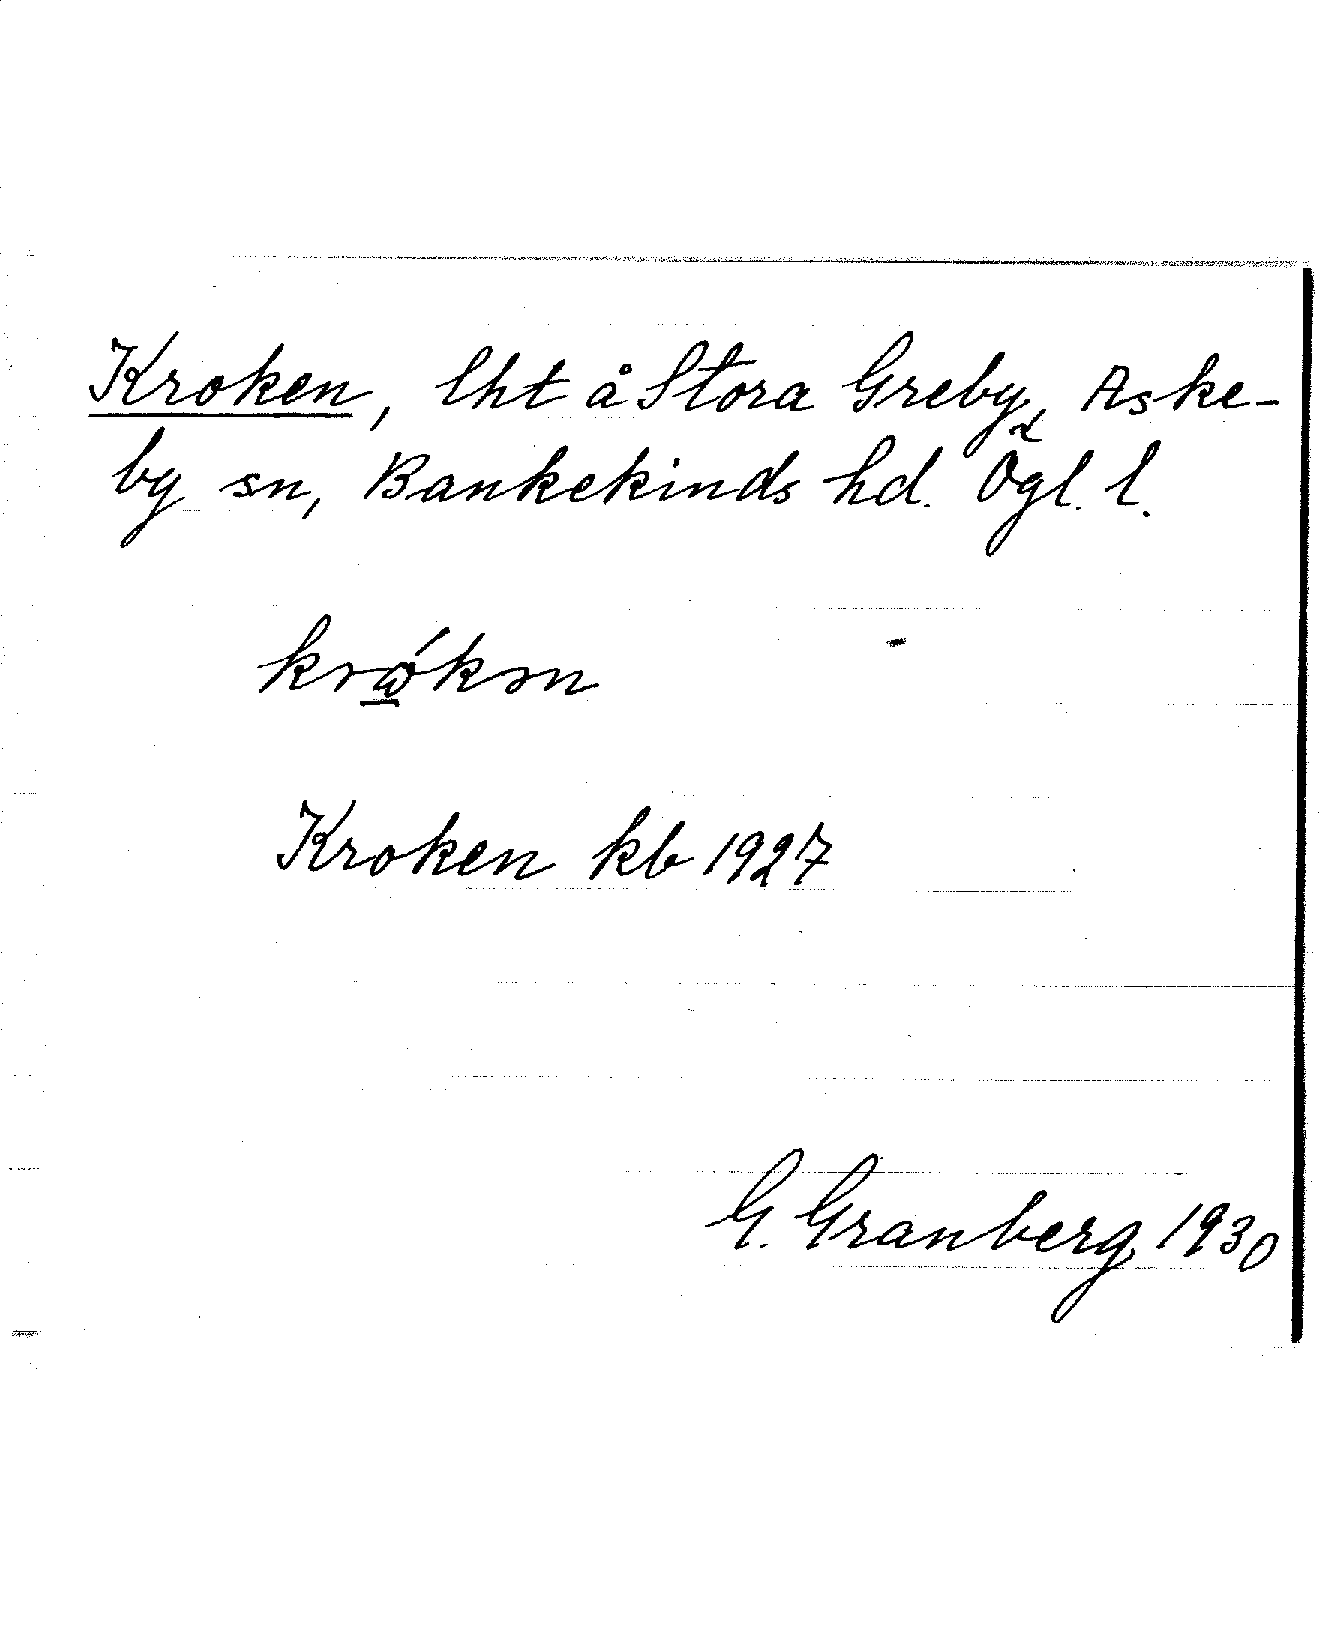 Kroken, lht å Stora Greby, Aske-
by sn, Bankekinds hd. Ögl. l.
krώkən
Kroken kb 1927
G. Granberg 1930